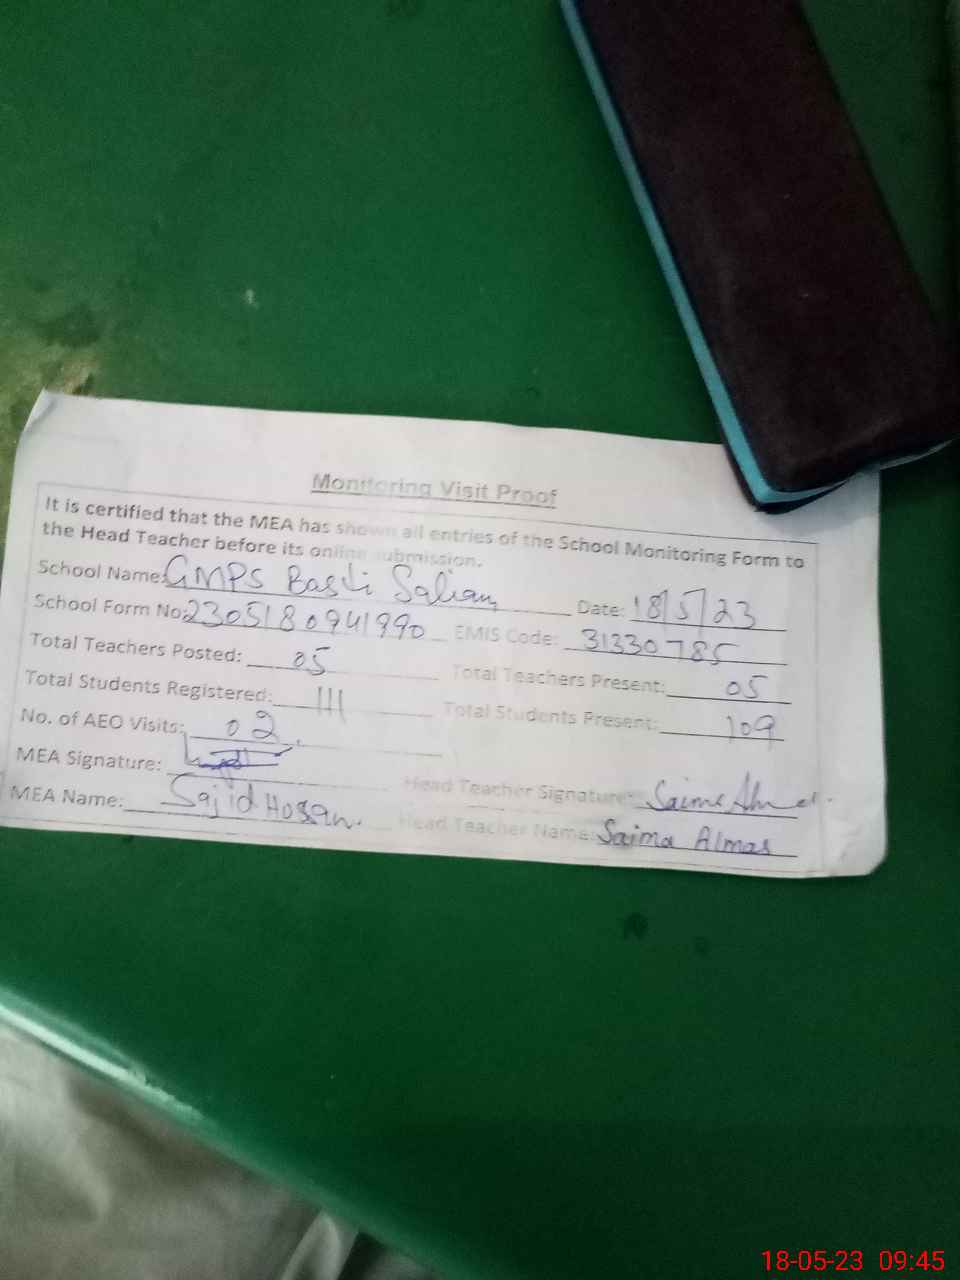 Monitoring Visit Proof
It is certified that the MEA has shown all entries of the School Monitoring Form to
the Head Teacher before its online submission.
School Name: GMPS Basti Salian Date: 18/5/23
School Form No: 2305180941990 EMIS Code: 31330785
Total Teachers Posted: 05 Total Teachers Present: 05
Total Students Registered: 111 Total Students Present: 109
No. of AEO Visits: 02
MEA Signature: Head Teacher Signature: Saima
MEA Name: Sajid Head Teacher Name: Saima Almas
18-05-23 09:45